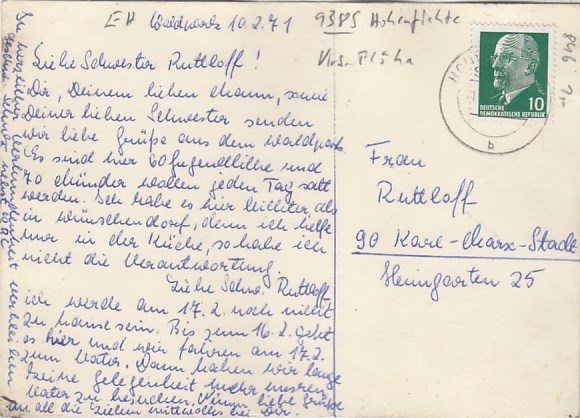 EH Waldpark 10.2.71
9385 Hohenfichte
Krs. Flöha
896
Liebe Schwester Ruttloff!
Dir, Deinem lieben Mann, sowie
Deiner lieben Schwester senden
wir liebe Grüße aus dem Waldpark.
Es sind hier 60 Jugendliche und
70 Münder wollen jeden Tag satt
werden. Ich habe es hier leichter als
in Wünschendorf, denn ich helfe
nur in der Küche, so habe ich
nicht die Verantwortung.
Liebe Schw. Ruttloff,
ich werde am 17.2. noch nicht
zu hause sein. Bis zum 16.2. geht
es hier und wir fahren am 17.2.
zum Vater. Dann haben wir lange
keine Gelegenheit mehr unseren
Vater zu besuchen. Nimm liebe Grüße
an all die Lieben
In herzlicher Verbundenheit verbleiben
DEUTSCHE
DEMOKRATISCHE REPUBLIK
10
b
Frau
Ruttloff
90 Karl-Marx-Stadt
Heimgarten 25